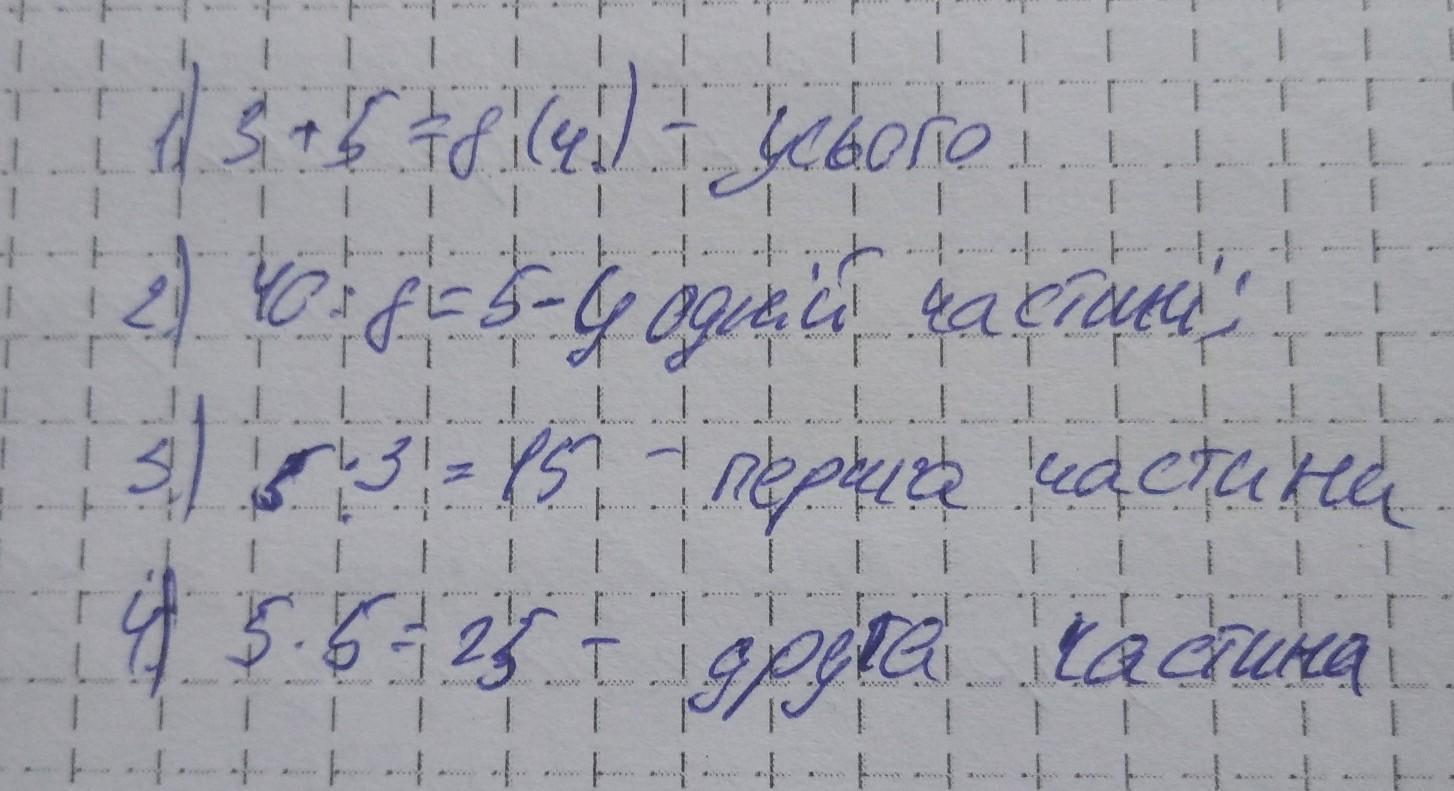 1) 3 + 5 = 8 (ч.) - усього
2) 40 : 8 = 5 - у одній частині;
3) 5 · 3 = 15 - перша частина
4) 5 · 5 = 25 - друга частина